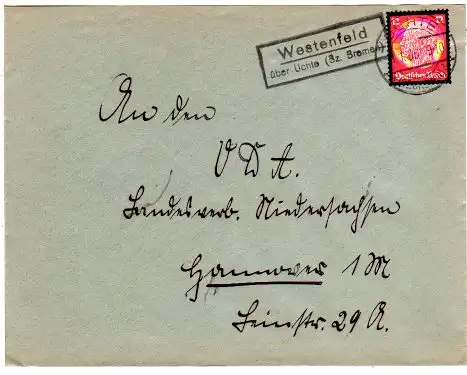 Westenfeld
über Uchte (Bz. Bremen)
Deutsches Reich
An den
V D A.
Landesverb. Niedersachsen
Hannover 1 M
Leinstr. 29 A.